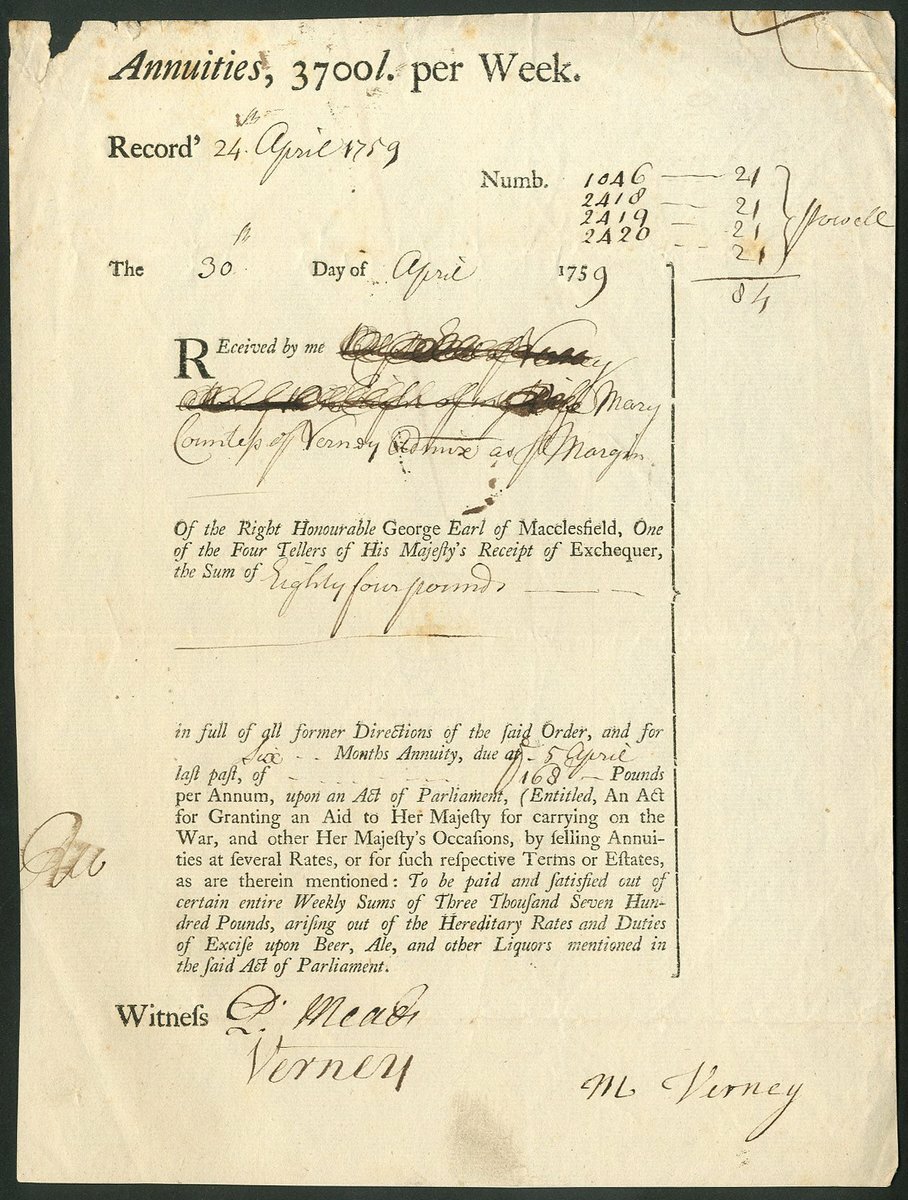 Annuities, 3700l. per Week.
Record' 24th April 1759
Numb. 1046 — 21
2418 — 21
2419 — 21
2420 — 21
Powell
84
The 30th Day of April 1759
REceived by me
Verney
of my Wife Mary
Countess of Verney Admix as pr Margin
Of the Right Honourable George Earl of Macclesfield, One
of the Four Tellers of His Majeſty's Receipt of Exchequer,
the Sum of Eighty four pounds
in full of all former Directions of the ſaid Order, and for
Six Months Annuity, due at 5 April
laſt paſt, of 168 Pounds
per Annum, upon an Act of Parliament, (Entitled, An Act
for Granting an Aid to Her Majeſty for carrying on the
War, and other Her Majeſty's Occaſions, by ſelling Annui-
ties at ſeveral Rates, or for ſuch reſpective Terms or Eſtates,
as are therein mentioned: To be paid and ſatisfied out of
certain entire Weekly Sums of Three Thouſand Seven Hun-
dred Pounds, ariſing out of the Hereditary Rates and Duties
of Exciſe upon Beer, Ale, and other Liquors mentioned in
the ſaid Act of Parliament.
Witneſs P. Meads
Verney
M Verney